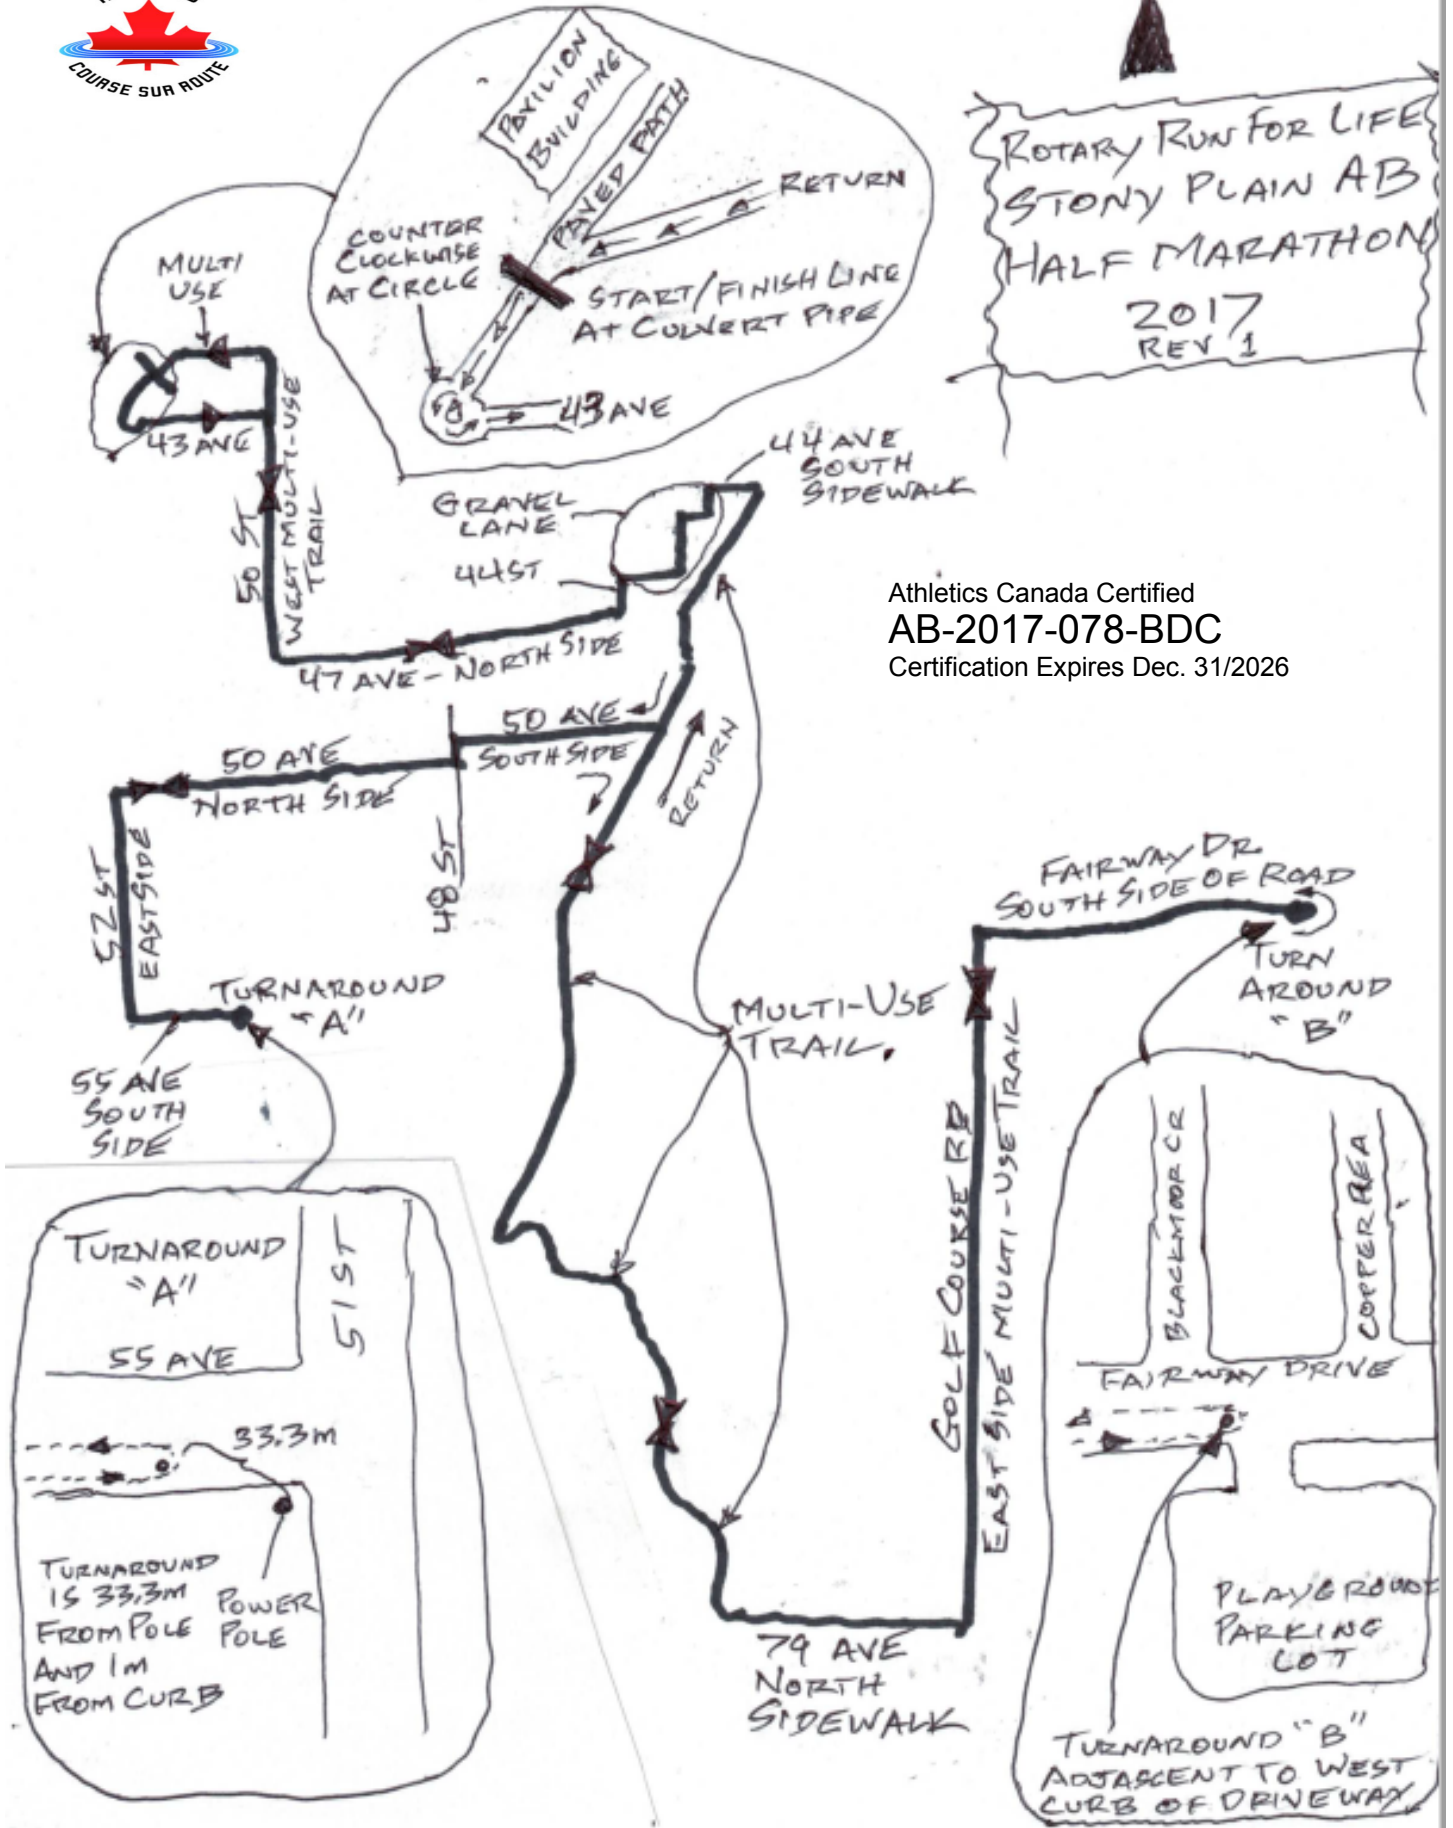 COURSE SUR ROUTE
PAVILION
BUILDING
PAVED PATH
RETURN
COUNTER
CLOCKWISE
AT CIRCLE
START/FINISH LINE
AT CULVERT PIPE
43 AVE
ROTARY RUN FOR LIFE
STONY PLAIN AB
HALF MARATHON
2017
REV 1
MULTI
USE
43 AVE
50 ST
WEST MULTI-USE
TRAIL
GRAVEL
LANE
44 ST
44 AVE
SOUTH
SIDEWALK
47 AVE - NORTH SIDE
Athletics Canada Certified
AB-2017-078-BDC
Certification Expires Dec. 31/2026
50 AVE
SOUTH SIDE
50 AVE
NORTH SIDE
RETURN
48 ST
52 ST
EAST SIDE
TURNAROUND
"A"
55 AVE
SOUTH
SIDE
MULTI-USE
TRAIL.
FAIRWAY DR
SOUTH SIDE OF ROAD
TURN
AROUND
"B"
GOLF COURSE RD
EAST SIDE MULTI-USE TRAIL
79 AVE
NORTH
SIDEWALK
TURNAROUND
"A"
51 ST
55 AVE
33.3m
TURNAROUND
IS 33.3m
FROM POLE
AND 1m
FROM CURB
POWER
POLE
BLACKMOOR CR
FAIRWAY DRIVE
PLAYGROUND
PARKING
LOT
TURNAROUND "B"
ADJASCENT TO WEST
CURB OF DRIVEWAY